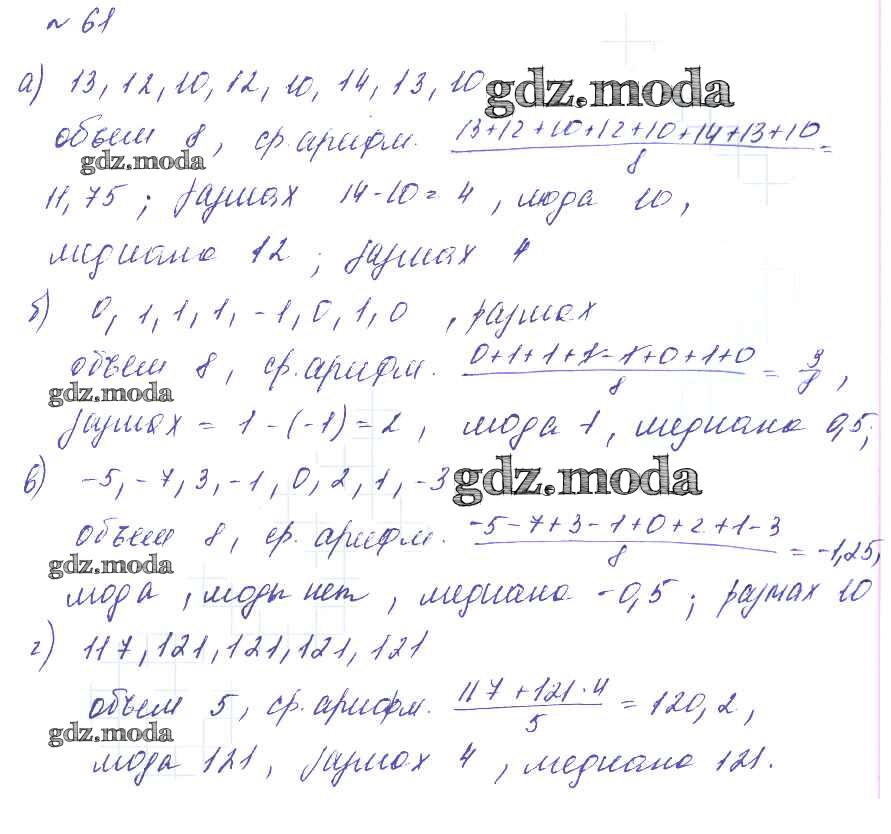 № 61
а) 13, 12, 10, 12, 10, 14, 13, 10 gdz.moda
объем 8, ср. арифм. (13+12+10+12+10+14+13+10)/8 =
gdz.moda
11,75 ; размах 14-10=4, мода 10,
медиана 12 ; размах 4
б) 0, 1, 1, 1, -1, 0, 1, 0 , размах
объем 8, ср. арифм. (0+1+1+1-1+0+1+0)/8 = 3/8,
gdz.moda
размах = 1-(-1)=2, мода 1, медиана 0,5;
в) -5, -7, 3, -1, 0, 2, 1, -3 gdz.moda
объем 8, ср. арифм. (-5-7+3-1+0+2+1-3)/8 = -1,25,
gdz.moda
мода , моды нет , медиана -0,5 ; размах 10
г) 117, 121, 121, 121, 121
объем 5, ср. арифм. (117+121·4)/5 = 120,2,
gdz.moda
мода 121, размах 4 , медиана 121.